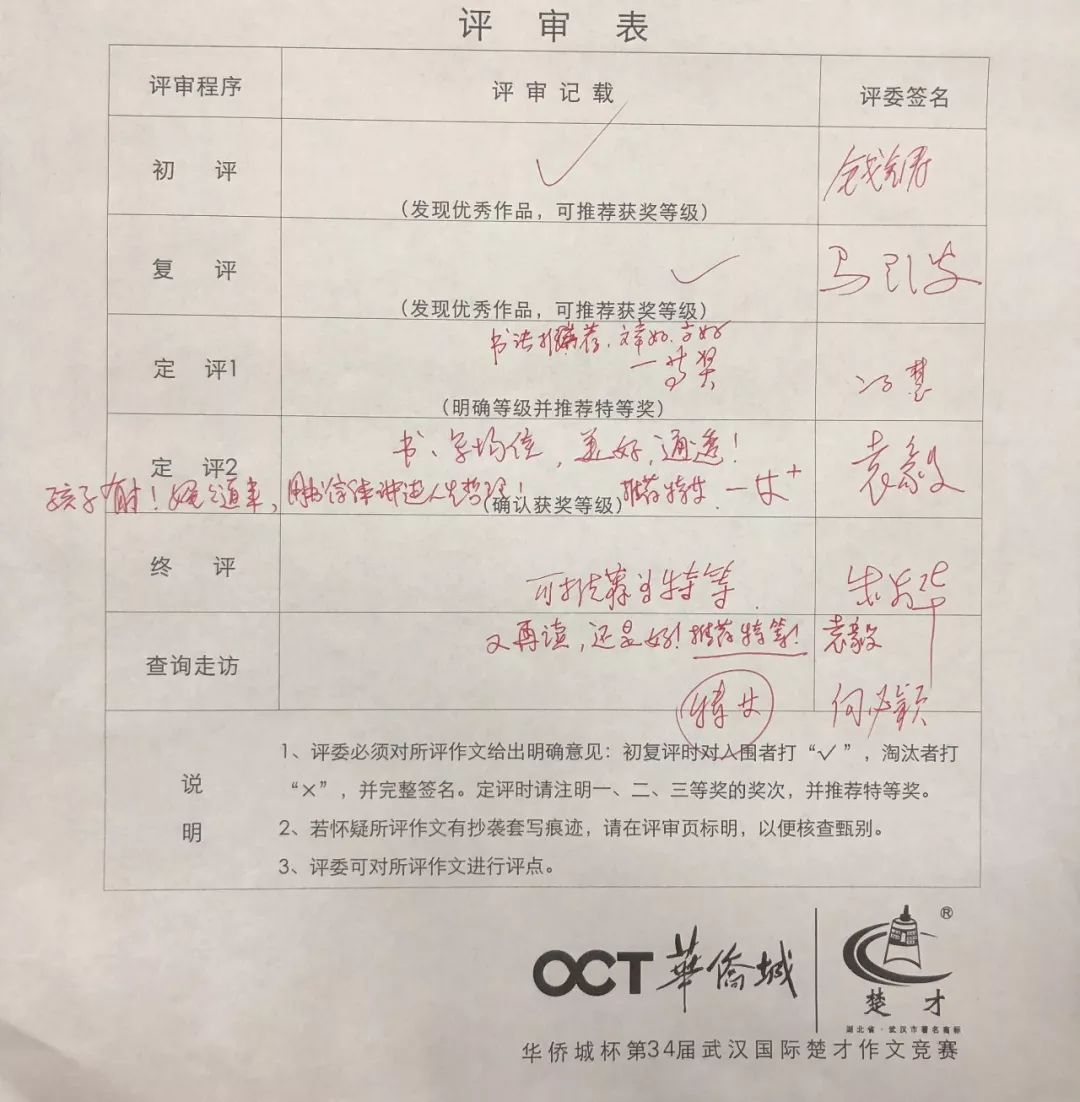 评审表
评审程序 评审记载 评委签名
初 评
(发现优秀作品，可推荐获奖等级)
复 评 马
(发现优秀作品，可推荐获奖等级)
书法推荐，文章好，字好
一等奖
定 评1 冯慧
(明确等级并推荐特等奖)
书、字均佳，美好，通透！
定 评2 袁毅
孩子 ！ 通来，用书信体讲述人生哲理！
(确认获奖等级) 推荐特 一 +
终 评 可推荐为特等 朱 华
又再读，还是好！推荐特等！ 袁毅
查询走访
特 何必颖
说明
1、评委必须对所评作文给出明确意见：初复评时对入围者打“√”，淘汰者打
“×”，并完整签名。定评时请注明一、二、三等奖的奖次，并推荐特等奖。
2、若怀疑所评作文有抄袭套写痕迹，请在评审页标明，以便核查甄别。
3、评委可对所评作文进行评点。
OCT 華僑城
®
楚才
湖北省·武汉市著名商标
华侨城杯第34届武汉国际楚才作文竞赛